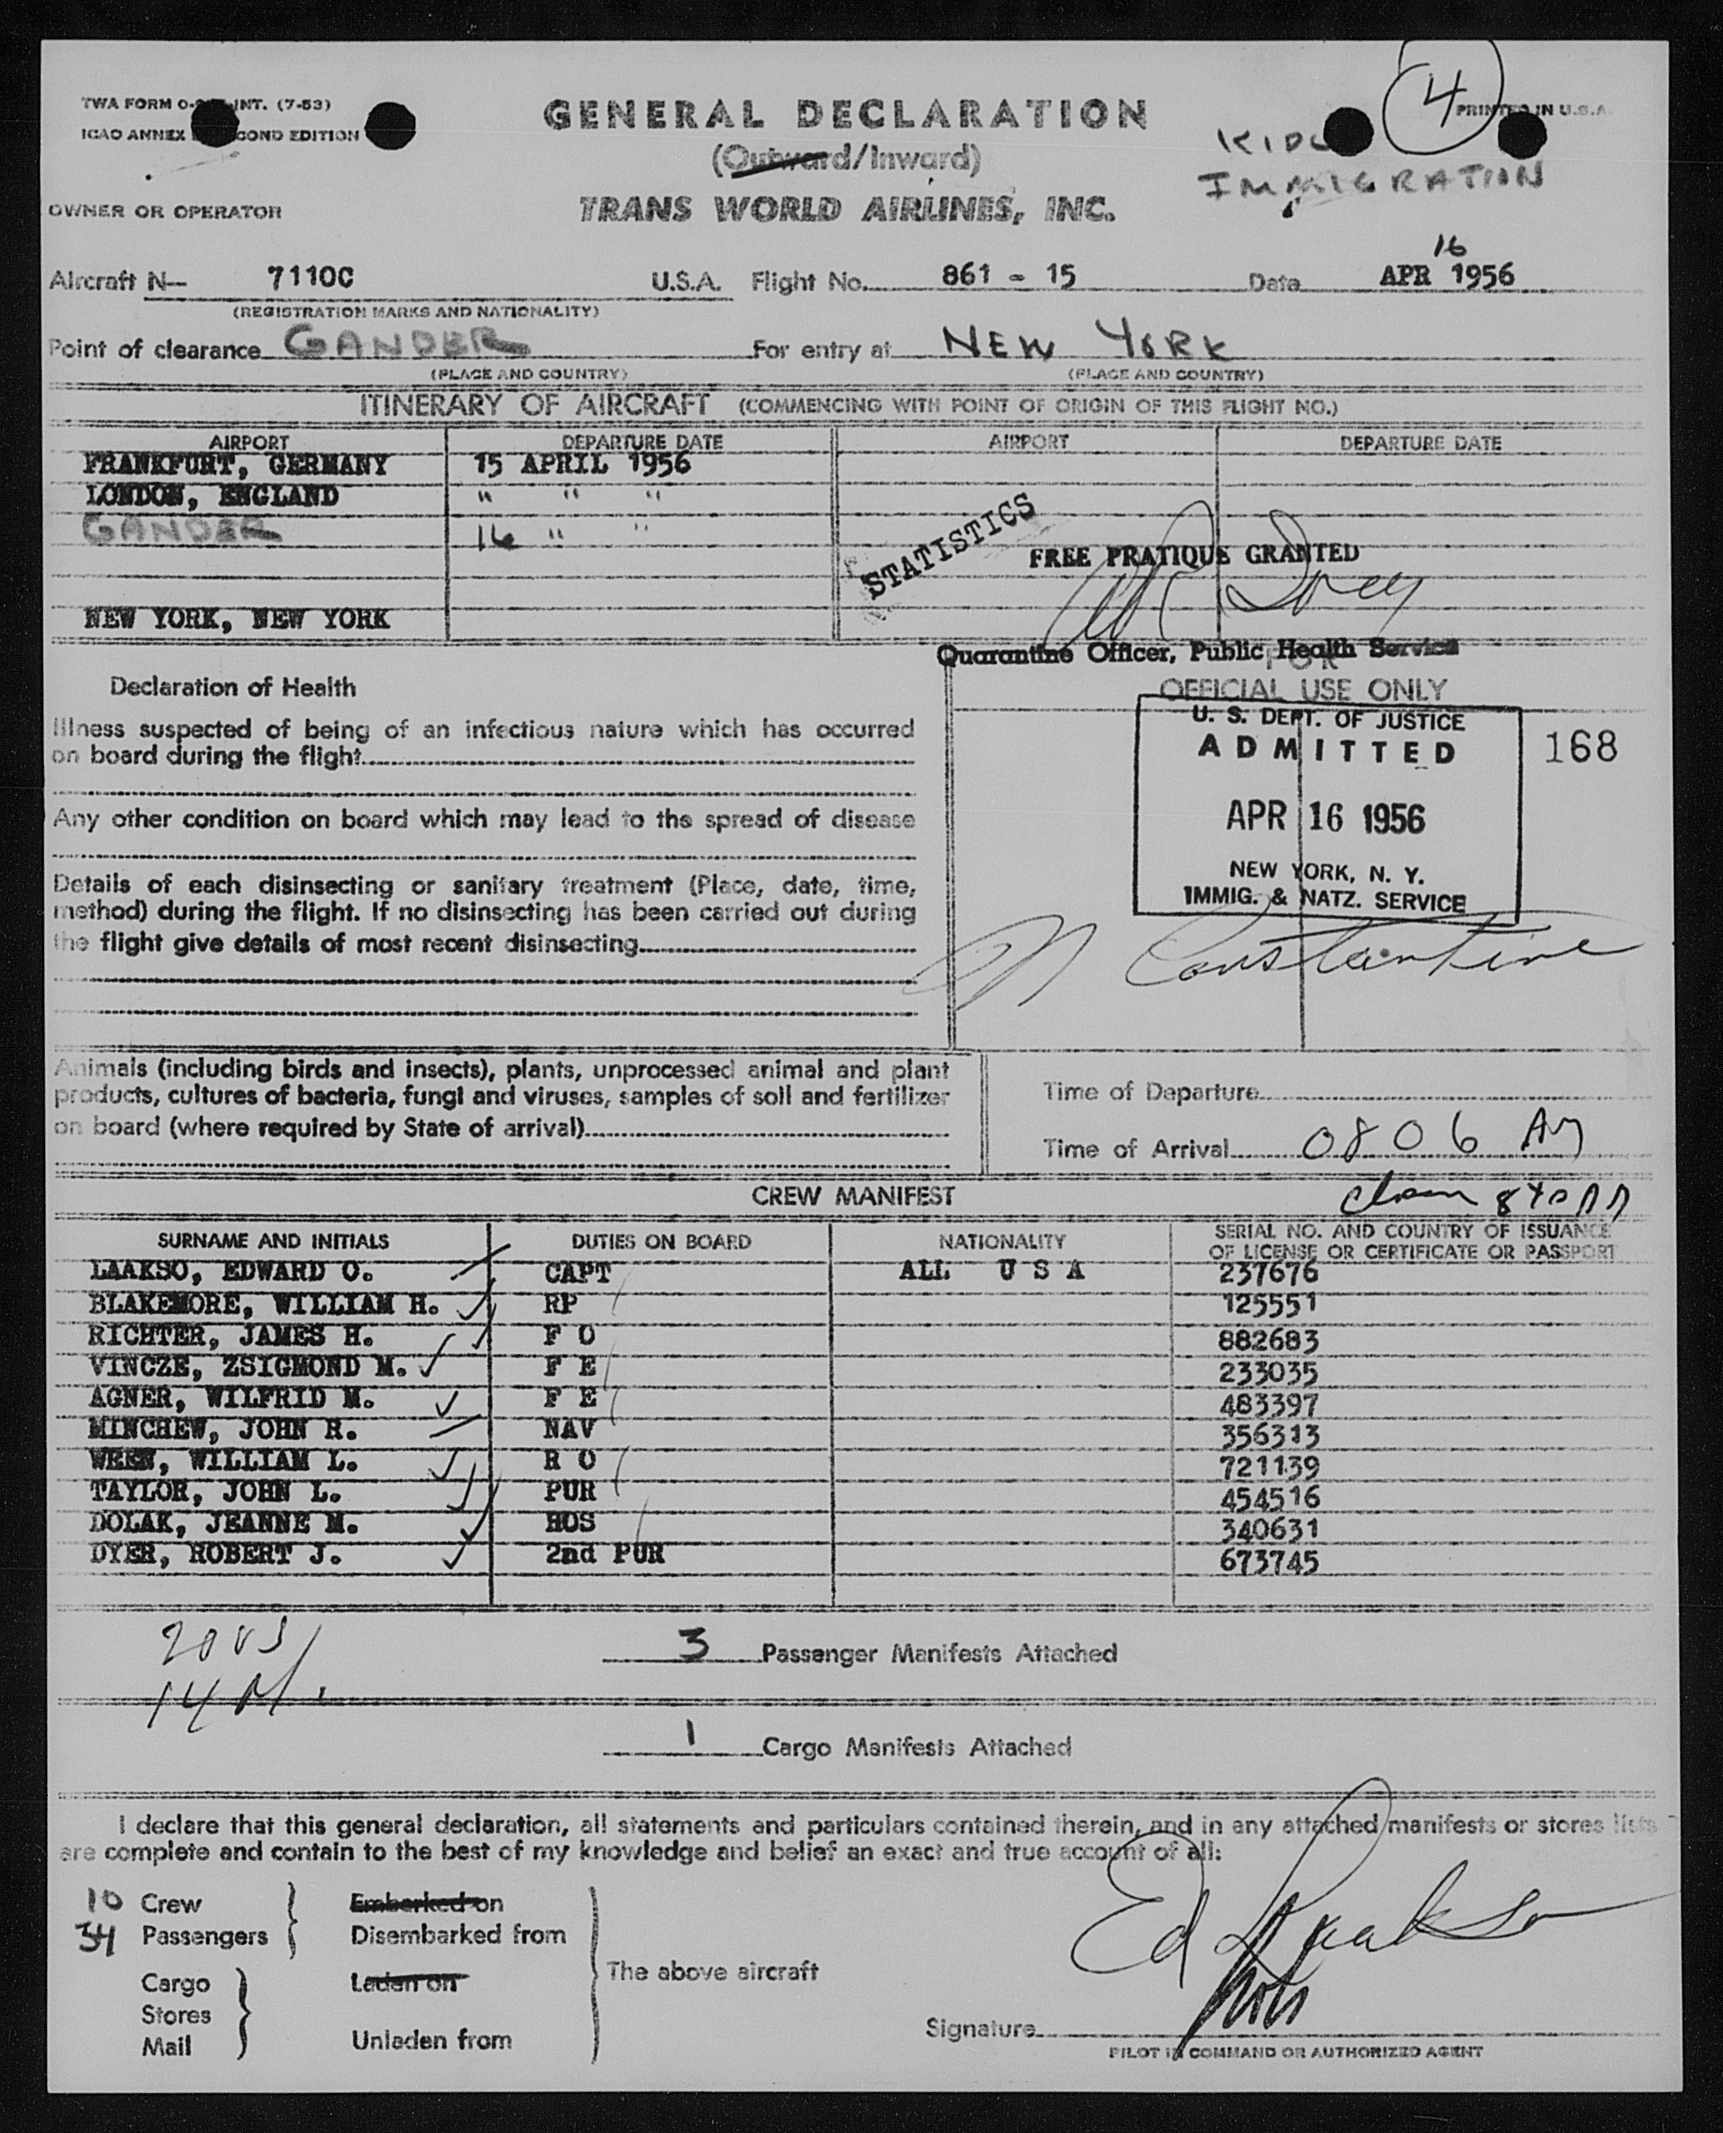 TWA FORM O- INT. (7-53)
ICAO ANNEX SECOND EDITION
PRINTED IN U.S.A.
4
GENERAL DECLARATION
(Outward/Inward)
IMMIGRATION
OWNER OR OPERATOR
TRANS WORLD AIRLINES, INC.
16
Aircraft N— 7110C U.S.A. Flight No. 861 - 15 Date APR 1956
(REGISTRATION MARKS AND NATIONALITY)
Point of clearance GANDER For entry at NEW YORK
(PLACE AND COUNTRY) (PLACE AND COUNTRY)
ITINERARY OF AIRCRAFT (COMMENCING WITH POINT OF ORIGIN OF THIS FLIGHT NO.)
AIRPORT DEPARTURE DATE AIRPORT DEPARTURE DATE
FRANKFURT, GERMANY 15 APRIL 1956
LONDON, ENGLAND " " "
GANDER 16 " "
STATISTICS
FREE PRATIQUE GRANTED
NEW YORK, NEW YORK
Quarantine Officer, Public Health Service
FOR
OFFICIAL USE ONLY
Declaration of Health
Illness suspected of being of an infectious nature which has occurred
on board during the flight
Any other condition on board which may lead to the spread of disease
Details of each disinsecting or sanitary treatment (Place, date, time,
method) during the flight. If no disinsecting has been carried out during
the flight give details of most recent disinsecting
U. S. DEPT. OF JUSTICE
ADMITTED
168
APR 16 1956
NEW YORK, N. Y.
IMMIG. & NATZ. SERVICE
M Constantine
Animals (including birds and insects), plants, unprocessed animal and plant
products, cultures of bacteria, fungi and viruses, samples of soil and fertilizer
on board (where required by State of arrival)
Time of Departure
Time of Arrival 0806 AM
CREW MANIFEST
SURNAME AND INITIALS DUTIES ON BOARD NATIONALITY SERIAL NO. AND COUNTRY OF ISSUANCE
OF LICENSE OR CERTIFICATE OR PASSPORT
LAAKSO, EDWARD O. CAPT ALL U S A 237676
BLAKEMORE, WILLIAM H. RP 125551
RICHTER, JAMES H. F O 882683
VINCZE, ZSIGMOND M. F E 233035
AGNER, WILFRID M. F E 483397
MINCHEW, JOHN R. NAV 356313
WEEN, WILLIAM L. R O 721139
TAYLOR, JOHN L. PUR 454516
DOLAK, JEANNE M. HOS 340631
DYER, ROBERT J. 2nd PUR 673745
3 Passenger Manifests Attached
1 Cargo Manifests Attached
I declare that this general declaration, all statements and particulars contained therein, and in any attached manifests or stores lists
are complete and contain to the best of my knowledge and belief an exact and true account of all:
10 Crew Embarked on
34 Passengers Disembarked from
Cargo Laden on
The above aircraft
Stores
Mail Unladen from
Ed Laakso
Signature
PILOT IN COMMAND OR AUTHORIZED AGENT